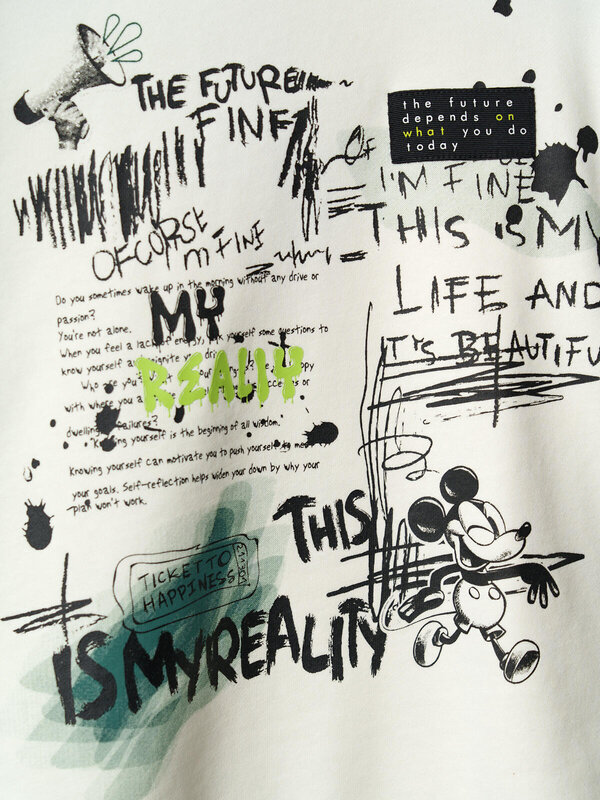 THE FUTURE
FINE
the future
depends on
what you do
today
OF
I'M FINE
THIS IS MY
LIFE AND
IT'S BEAUTIFU
OFCORSE
M FINE
Do you sometimes wake up in the morning without any drive or
passion?
You're not alone.
When you feel a lack of energy, ask yourself some questions to
know yourself and ignite your dri
MY
REALIY
Who are you?
with where you a
dwelling failures?
"Knowing yourself is the beginning of all wisdom."
Knowing yourself can motivate you to push yourself to meet
your goals. Self-reflection helps widen your down by why your
plan won't work.
THIS
TICKET TO
HAPPINESS
IS MY REALITY